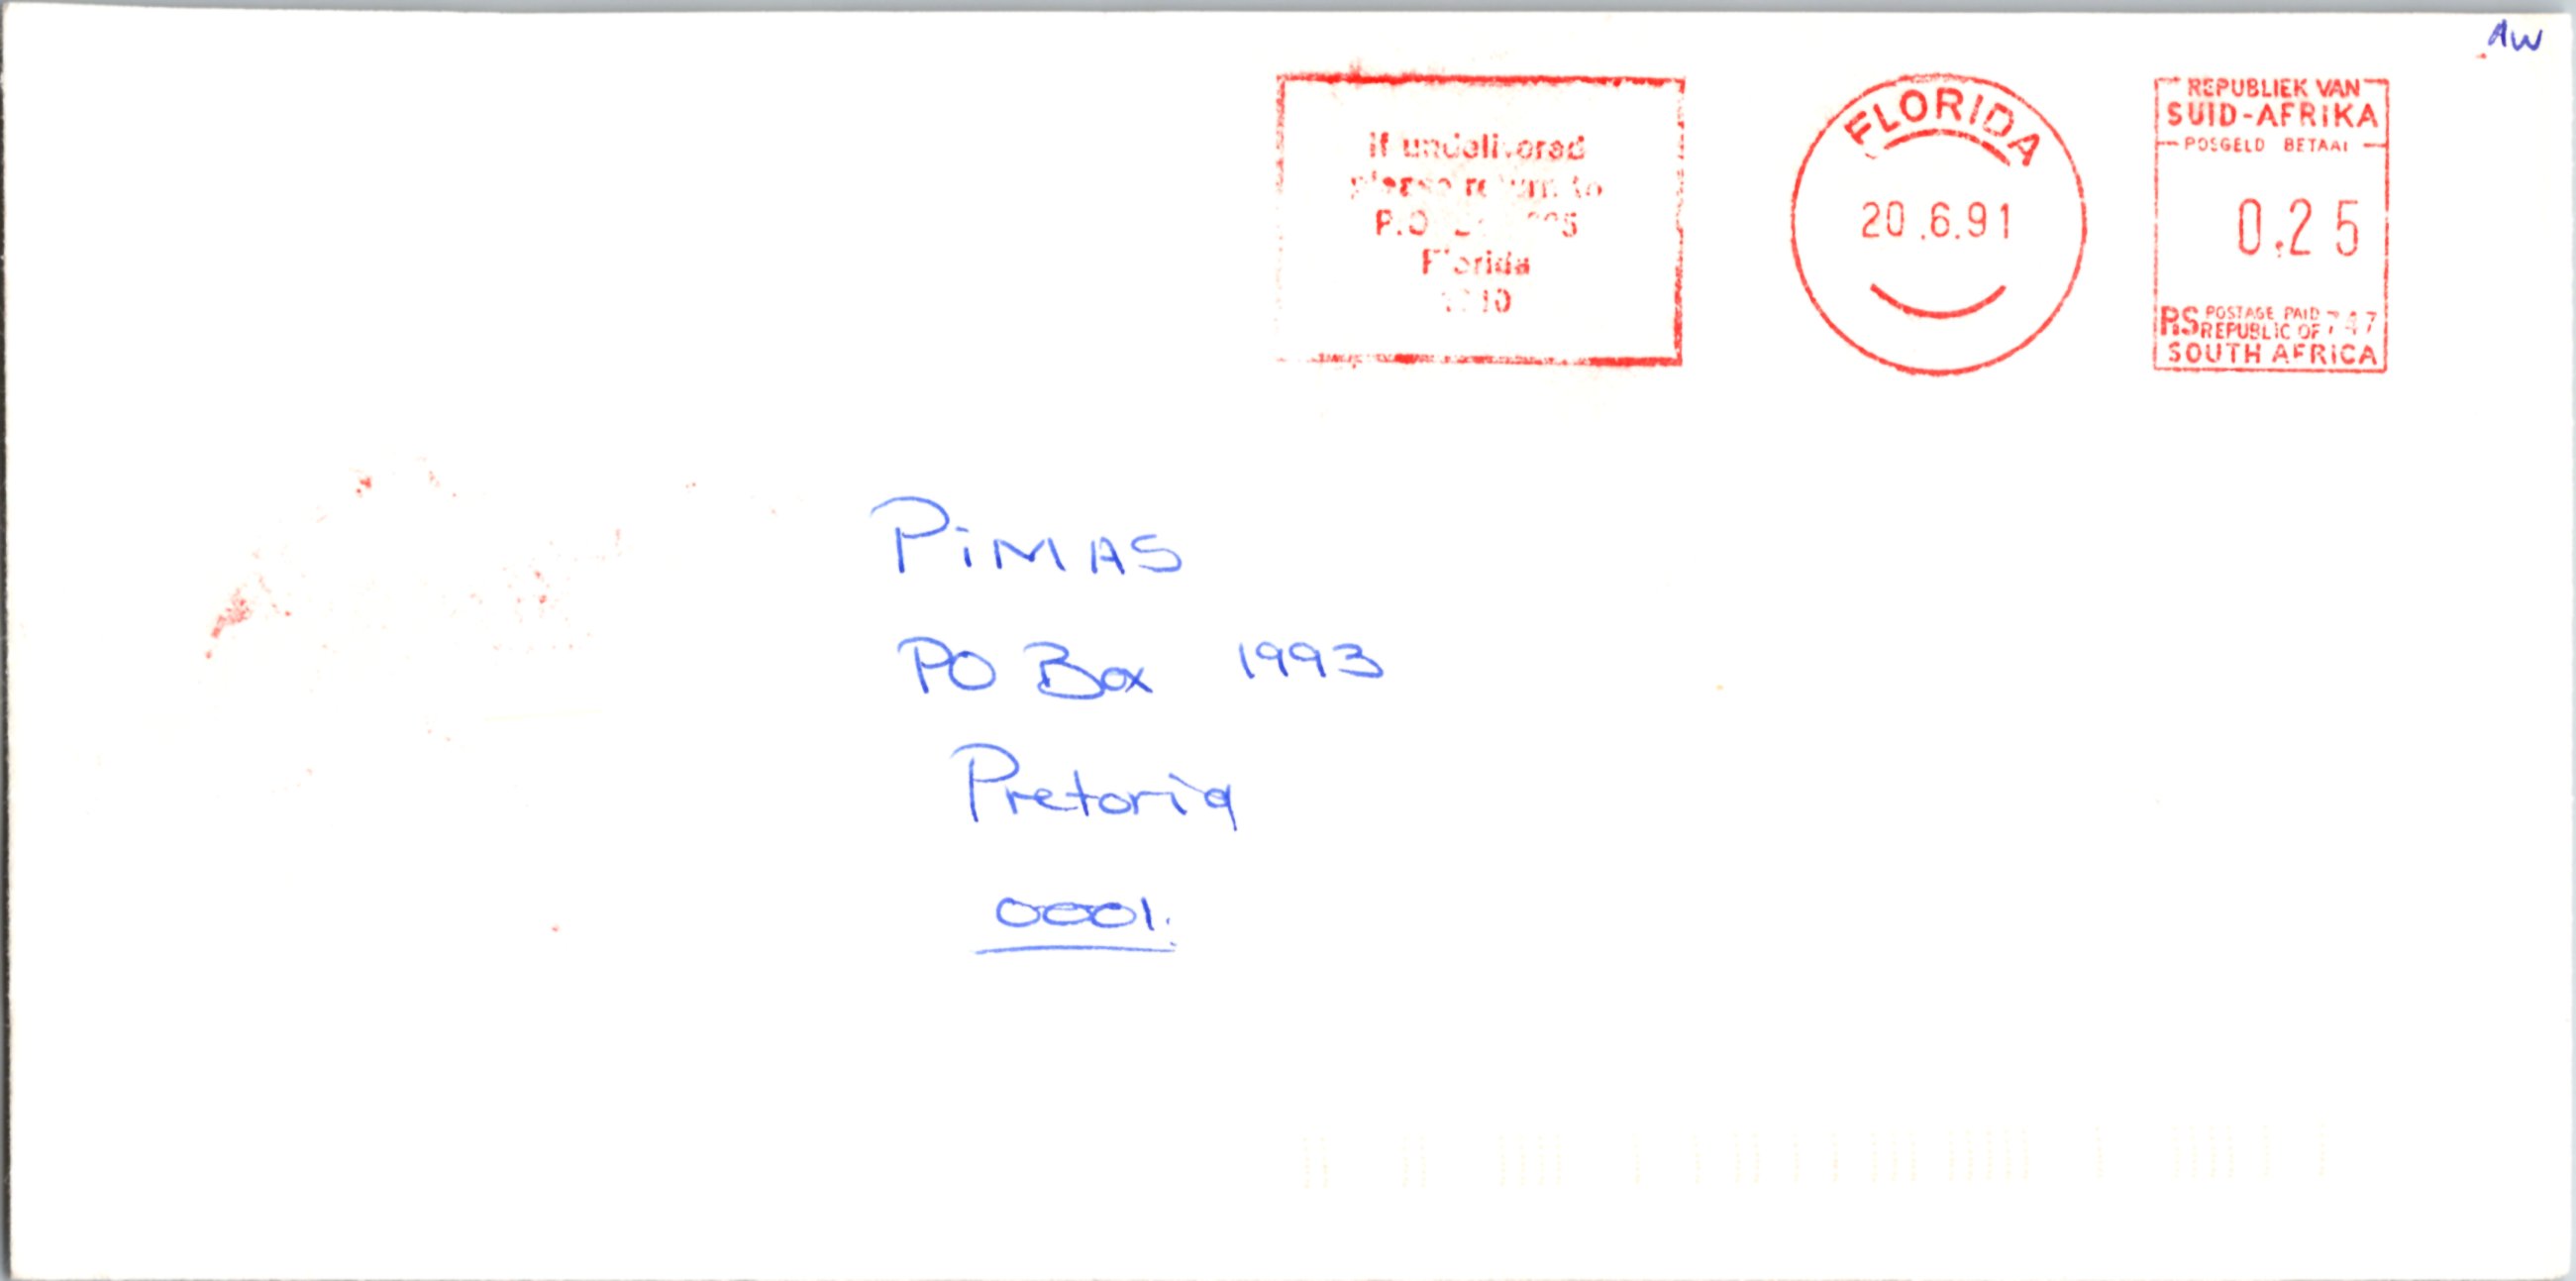 AW
If undelivered
please return to
P.O.
Florida
FLORIDA
20.6.91
REPUBLIEK VAN
SUID-AFRIKA
POSGELD BETAAL
0.25
RS POSTAGE PAID 747
REPUBLIC OF
SOUTH AFRICA
PiMAS
PO Box 1993
Pretoria
0001.